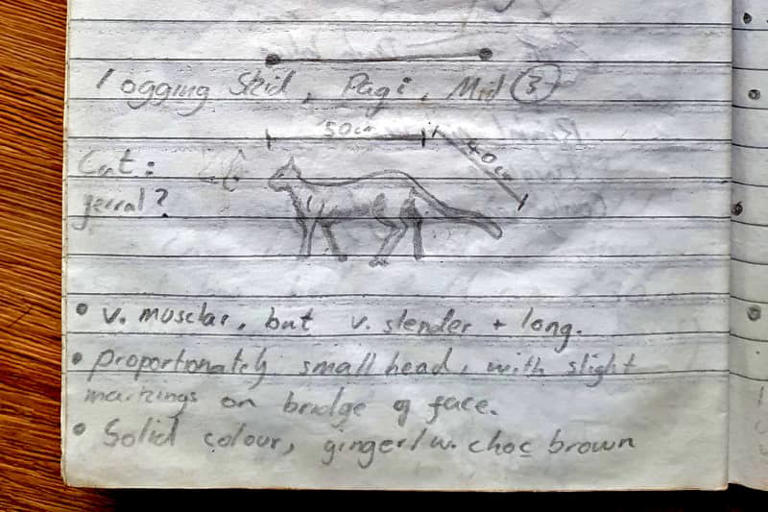 logging Skid, Pagi, Mid ③
50cm
40cm
Cat:
ferral?
• v. musclar, but v. slender + long.
• proportionately small head, with slight
markings on bridge of face.
• Solid colour, ginger/w. choc brown